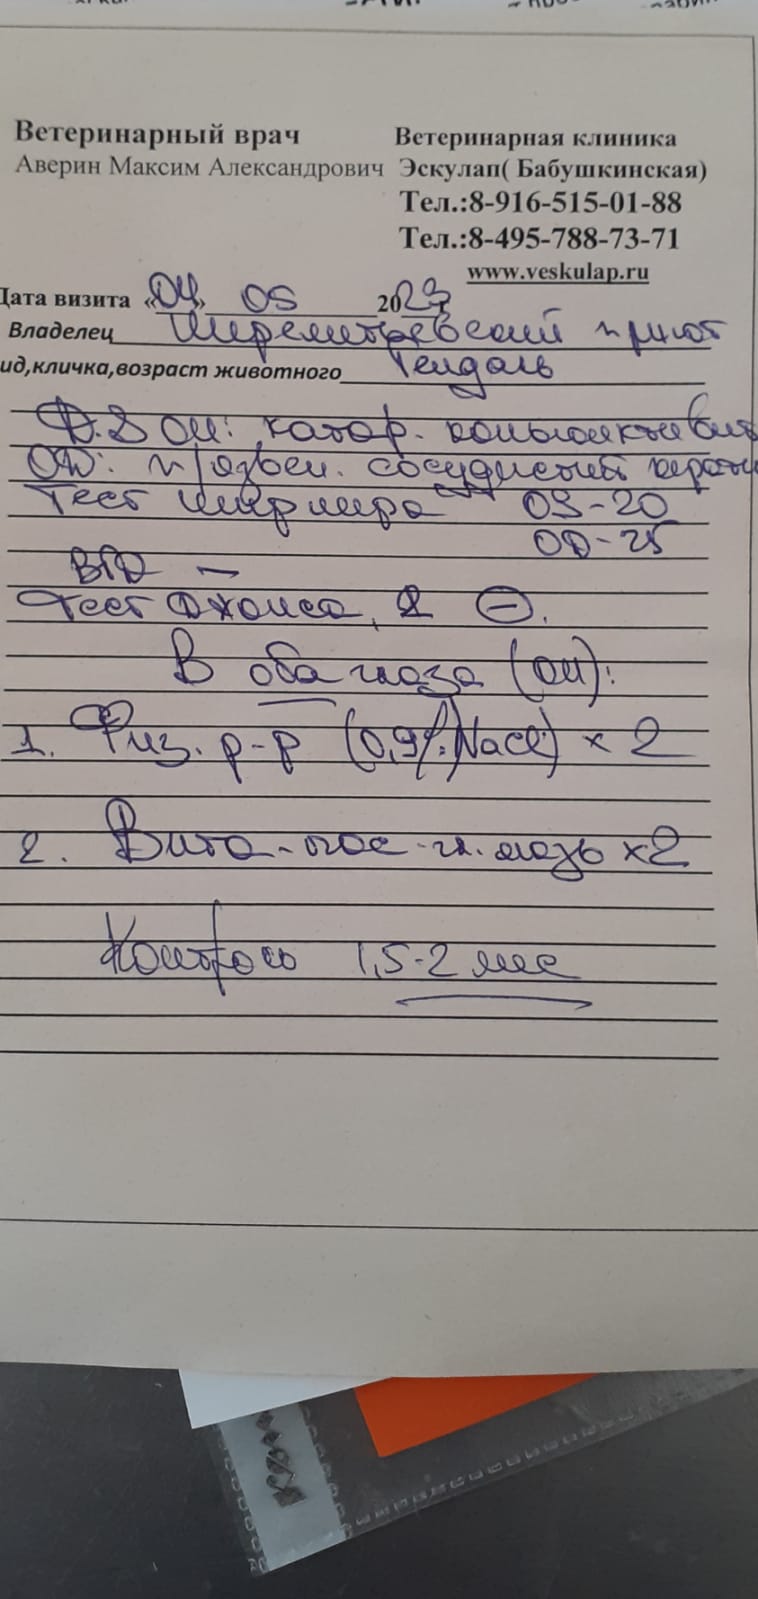 Ветеринарный врач Ветеринарная клиника
Аверин Максим Александрович Эскулап( Бабушкинская)
Тел.:8-916-515-01-88
Тел.:8-495-788-73-71
www.veskulap.ru
Дата визита «04» 05 2023
Владелец Шереметьевский приют
ид,кличка,возраст животного Тендаль
D.S OU: катар. конъюнктивит
OD: п/язвен. сосудистый керати
Тест Ширмера OS-20
OD-25
ВГД —
Тест Джонса, 2 (-).
В оба глаза (OU):
1. Физ. р-р (0,9% NaCl) x 2
2. Вита-пос-гл. мазь x2
Контроль 1,5-2 мес